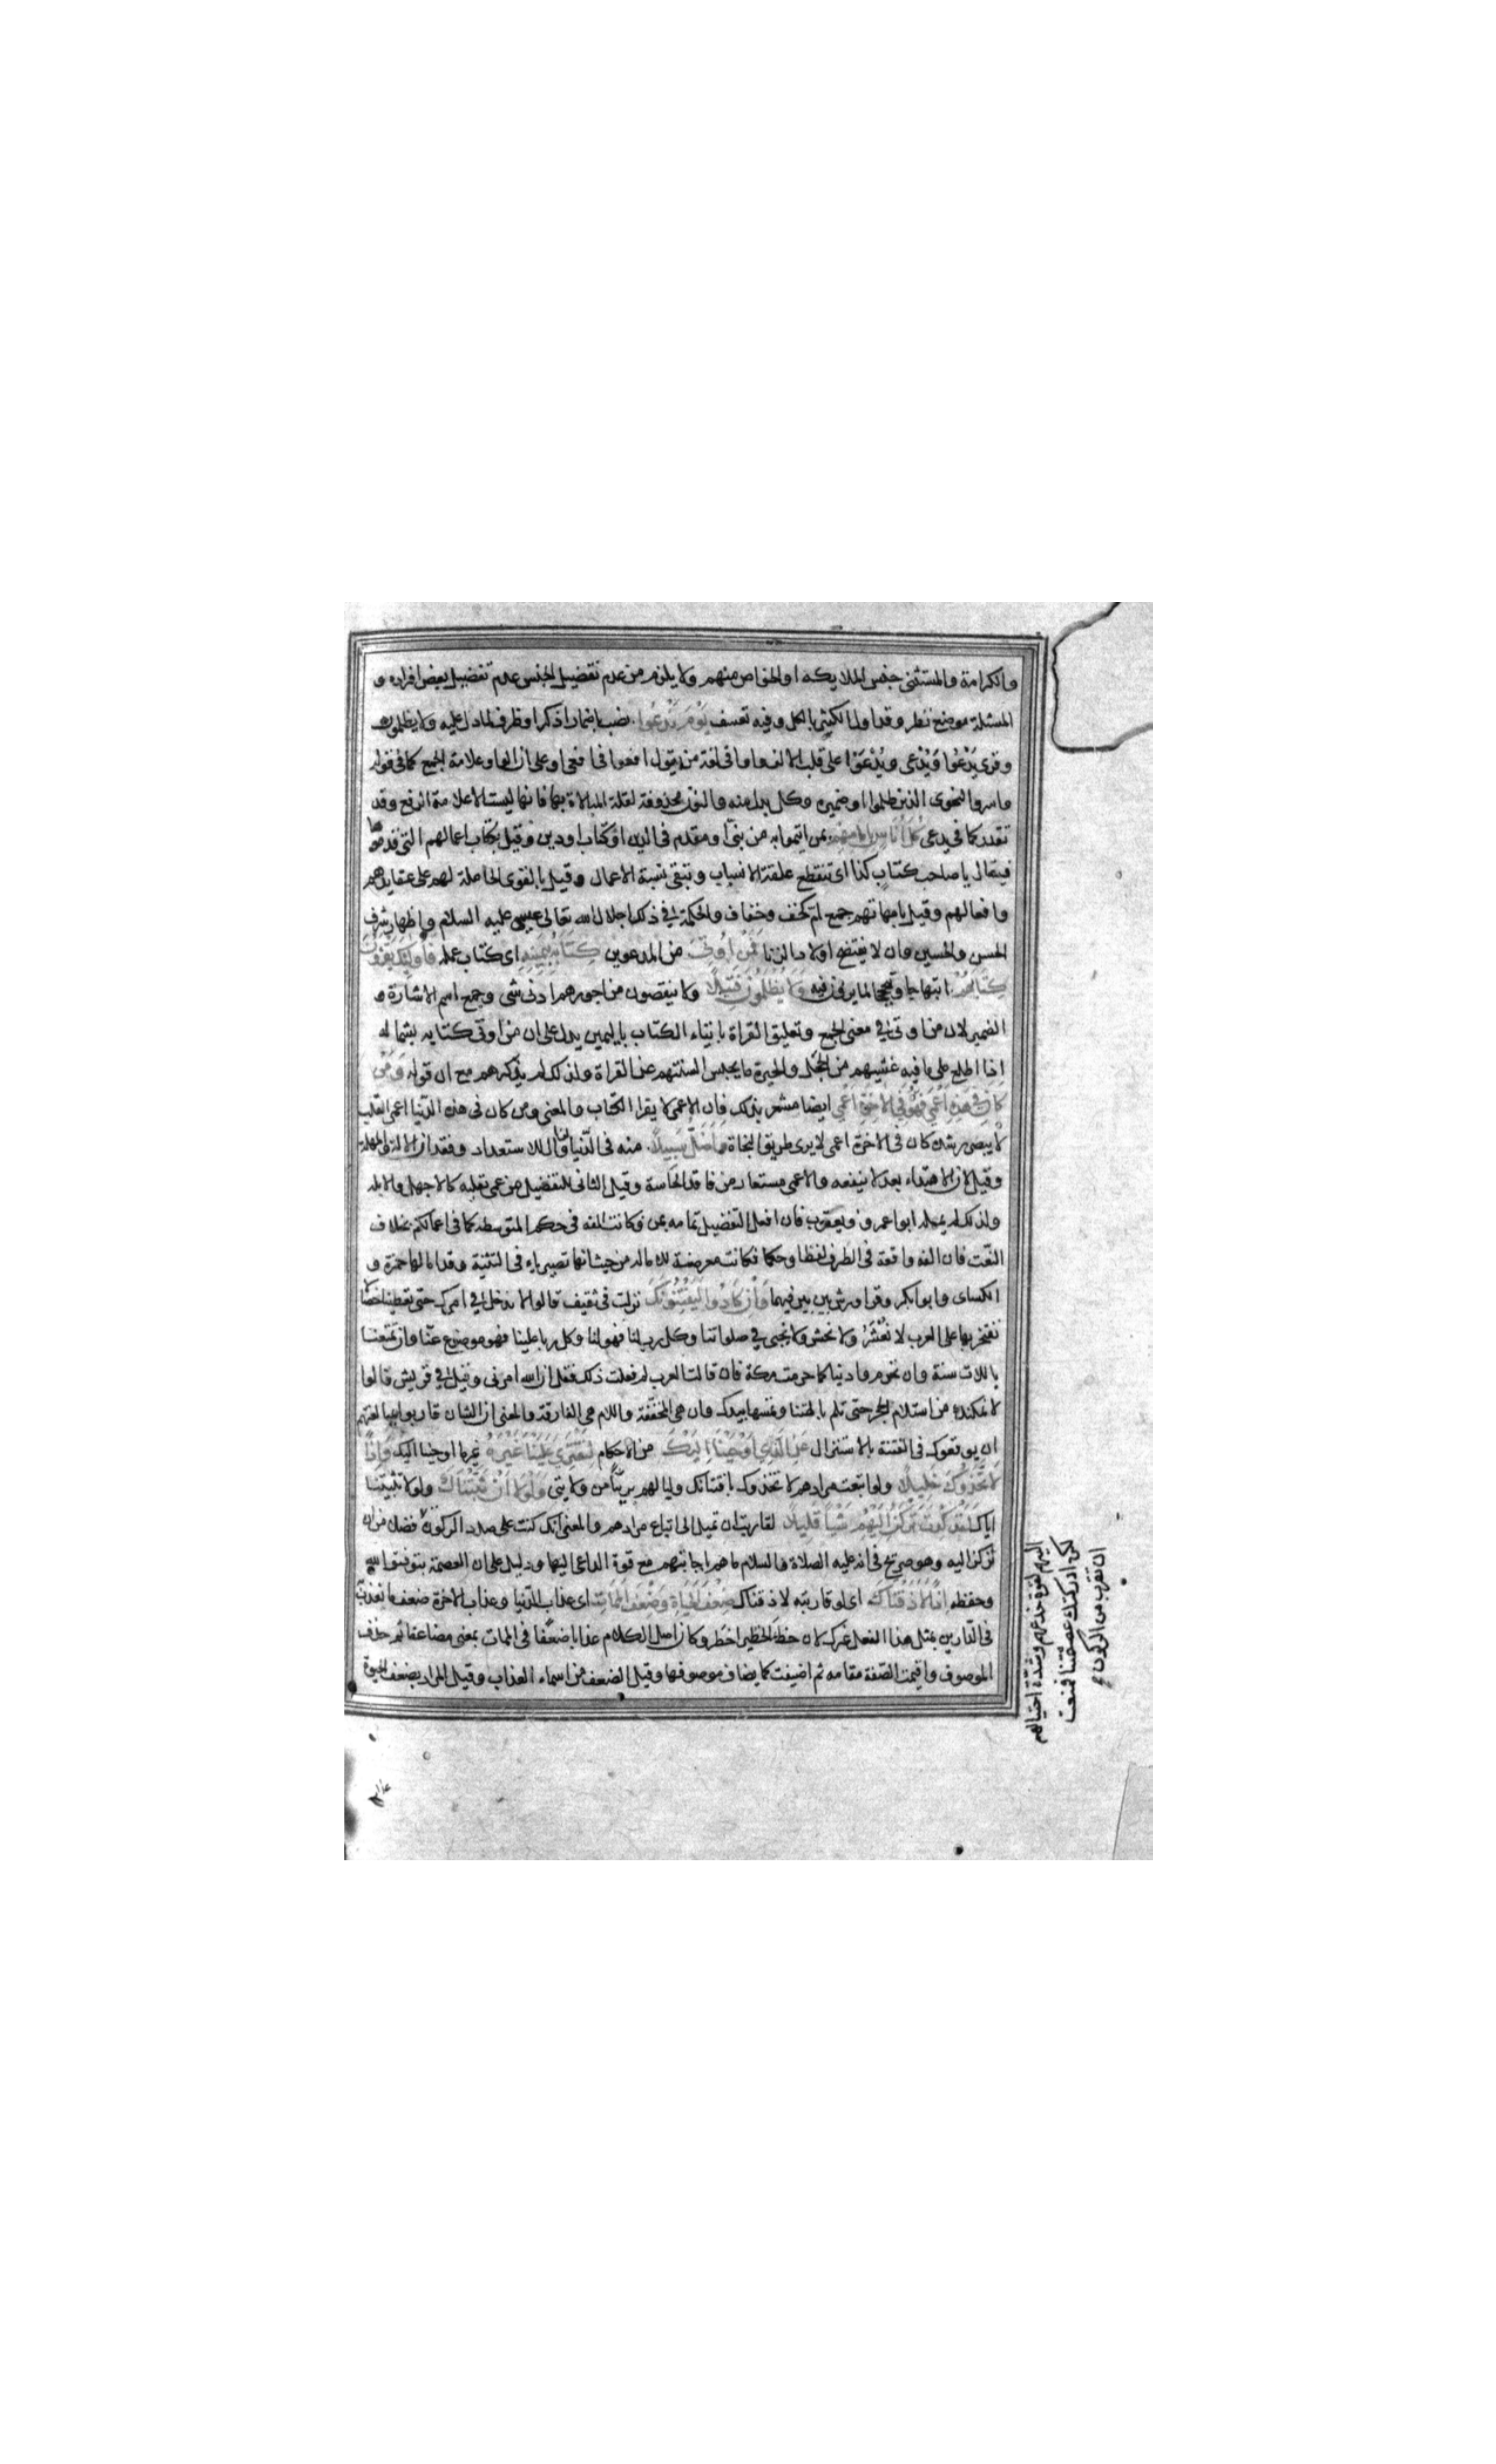 والكرامة والمستثنى جنس الملائكة او الخواص منهم ولا يلزم من عدم تفضيل الجنس عدم تفضيل بعض افراده و
المسئلة موضع نظر وقد اول الكثير بالكل وفيه تعسف يَوْمَ نَدْعُوا نصب باضمار اذكر او ظرف لما دل عليه ولا يظلمون
وقرئ يَدْعُوا وَيُدْعى ويُدْعَوْا على قلب الالف واوا فى لغة من يقول افعوا فى افعى او على ان الواو علامة الجمع كما فى قوله
واسروا النجوى الذين ظلموا او ضميره وكل بدل منه والنون محذوفة لقلة المبالاة بها فانها ليست الا علامة الرفع وقد
تقدر كما فى يدعى كُلَّ أُنَاسٍ بِإِمَامِهِمْ بمن ايتموا به من نبىّ او مقدم فى الدين او كتاب او دين وقيل بكتاب اعمالهم التى قدموها
فيقال يا صاحب كتاب كذا اى تنقطع علقة الانساب وتبقى نسبة الاعمال وقيل بالقوى الحاملة لهم على عقايدهم
وافعالهم وقيل بامهاتهم جمع ام كخف وخفاف والحكمة فى ذلك اجلال الله تعالى عيسى عليه السلام واظهار شرف
الحسن والحسين وان لا يفتضح اولاد الزنا فَمَنْ أُوتِىَ من المدعوين كِتَابَهُ بِيَمِينِهِ اى كتاب عمله فَأُولٰئِكَ يَقْرَؤُنَ
كِتَابَهُمْ ابتهاجا وتبجحا بما يرون فيه وَلَا يُظْلَمُونَ فَتِيلًا ولا ينقصون من اجورهم ادنى شى وجمع اسم الاشارة و
الضمير لان من اوتى فى معنى الجمع وتعليق القراة بايتاء الكتاب باليمين يدل على ان من اوتى كتابه بشماله
اذا اطلع على ما فيه غشيهم من الخجل والحيرة ما يحبس السنتهم عن القراة ولذلك لم يذكرهم مع ان قوله وَمَنْ
كَانَ فِى هٰذِهِ أَعْمىٰ فَهُوَ فِى الْآخِرَةِ أَعْمىٰ ايضا مشعر بذلك فان الاعمى لا يقرا الكتاب والمعنى ومن كان فى هذه الدنيا اعمى القلب
لا يبصر رشده كان فى الاخرة اعمى لا يرى طريق النجاة وَأَضَلُّ سَبِيلًا منه فى الدّنيا لزوال الاستعداد وفقدان الالة والمهلة
وقيل لان الاهتداء بعد لا ينفعه والاعمى مستعار من فاقد الحاسة وقيل الثانى للتفضيل من عمى بقلبه كالاجهل والابله
ولذلك لم يمله ابو عمرو ويعقوب فان افعل التفضيل تمامه بمن فكانت الفه فى حكم المتوسطة كما فى اعمالكم بخلاف
النّعت فان الفه واقعة فى الطرف لفظا وحكما فكانت معرضة للامالة من حيث انها تصير ياء فى التثنية وقد امالهما حمزة و
الكساى وابو بكر وقرا ورش بين بين فيهما وَإِنْ كَادُوا لَيَفْتِنُونَكَ نزلت فى ثقيف قالوا لا ندخل فى امرك حتى تعطينا خصالا
نفتخر بها على العرب لا نُعْشَرُ ولا نحشر ولا نجبى فى صلواتنا وكل ربا لنا فهو لنا وكل ربا علينا فهو موضوع عنّا وان تمتعنا
باللات سنة وان تحرم وادينا كما حرمت مكة فان قالت العرب لم فعلت ذلك فقل ان الله امرنى وقيل فى قريش قالوا
لا نمكنك من استلام الحجر حتى تلم بالهتنا وتمسها بيدك وان هى المخفّفة واللام هى الفارقة والمعنى ان الشان قاربوا بمبالغتهم
ان يوقعوك فى الفتنة بالاستنزال عَنِ الَّذِى أَوْحَيْنَا إِلَيْكَ من الاحكام لِتَفْتَرِىَ عَلَيْنَا غَيْرَهُ غير ما اوحينا اليك وَإِذًا
لَاتَّخَذُوكَ خَلِيلًا ولو اتبعت مرادهم لاتخذوك بافتتانك وليا لهم بريّئا من ولايتى وَلَوْلَا أَنْ ثَبَّتْنَاكَ ولولا تثبيتنا
اياك لَقَدْ كِدْتَ تَرْكَنُ إِلَيْهِمْ شَيْئًا قَلِيلًا لقاربت ان تميل الى اتباع مرادهم والمعنى انك كنت على صدد الركون فضلا من ان
تركن اليه وهو صريح فى انه عليه الصلاة والسلام ما هم باجابتهم مع قوة الداعى اليها ودليل على ان العصمة بتوفيق الله
وحفظه إِذًا لَأَذَقْنَاكَ اى لو قاربته لاذقناك ضِعْفَ الْحَيَاةِ وَضِعْفَ الْمَمَاتِ اى عذاب الدّنيا وعذاب الاخرة ضعف ما نعذب
فى الدّارين بمثل هذا الفعل غيرك لان خطأ الخطير اخطر وكان اصل الكلام عذابا ضعفا فى الممات بمعنى مضاعفا ثم حذف
الموصوف واقيمت الصّفة مقامه ثم اضيفت كما يضاف موصوفها وقيل الضعف من اسماء العذاب وقيل المراد بضعف الحيوة
اليهم لقوة خدعهم وشدّة احتيالهم
لكن ادركتك عصمتنا فمنعت
ان تقرب من الركون